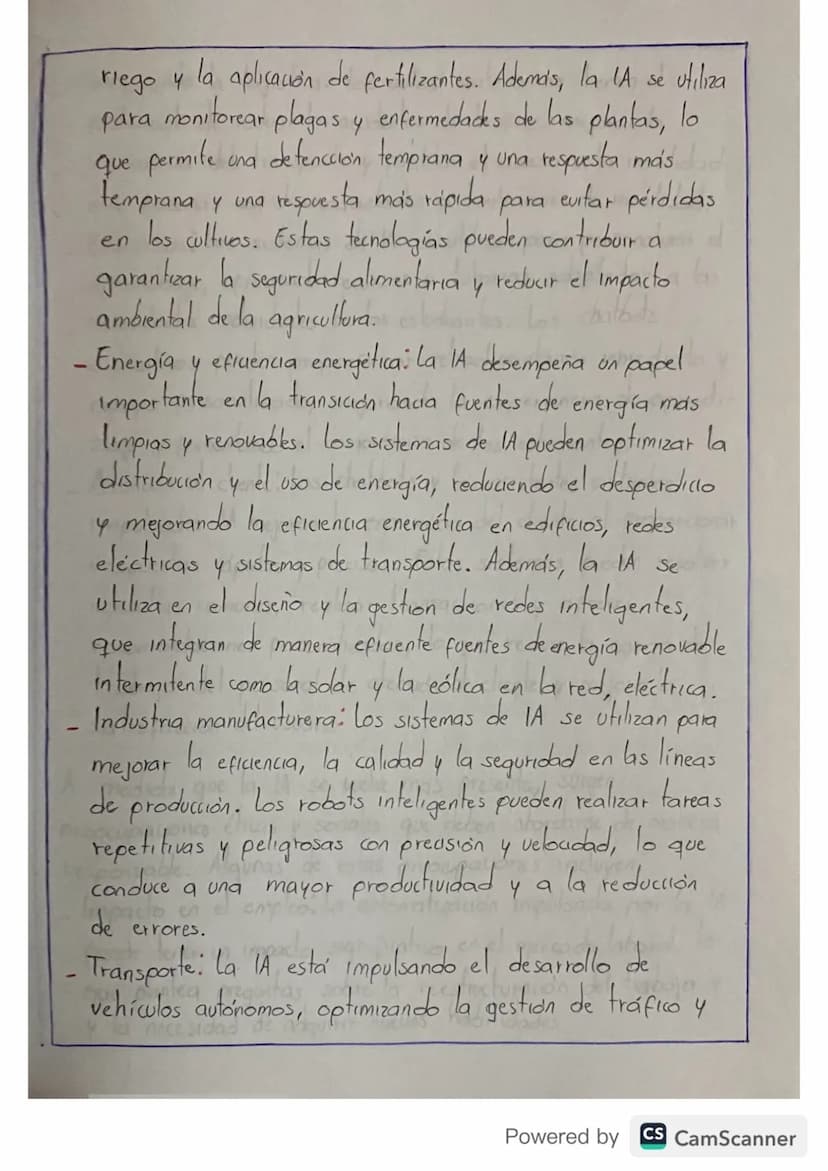 riego y la aplicación de fertilizantes. Además, la IA se utiliza
para monitorear plagas y enfermedades de las plantas, lo
que permite una detencción temprana y una respuesta más
temprana y una respuesta más rápida para evitar pérdidas
en los cultivos. Estas tecnologías pueden contribuir a
garantizar la seguridad alimentaria y reducir el impacto
ambiental de la agricultura.
- Energía y eficiencia energética: La IA desempeña un papel
importante en la transición hacia fuentes de energía más
limpias y renovables. Los sistemas de IA pueden optimizar la
distribución y el uso de energía, reduciendo el desperdicio
y mejorando la eficiencia energética en edificios, redes
eléctricas y sistemas de transporte. Además, la IA se
utiliza en el diseño y la gestión de redes inteligentes,
que integran de manera eficiente fuentes de energía renovable
intermitente como la solar y la eólica en la red, eléctrica.
- Industria manufacturera: Los sistemas de IA se utilizan para
mejorar la eficiencia, la calidad y la seguridad en las líneas
de producción. Los robots inteligentes pueden realizar tareas
repetitivas y peligrosas con precisión y velocidad, lo que
conduce a una mayor productividad y a la reducción
de errores.
- Transporte: La IA está impulsando el desarrollo de
vehículos autónomos, optimizando la gestión de tráfico y
Powered by CS CamScanner